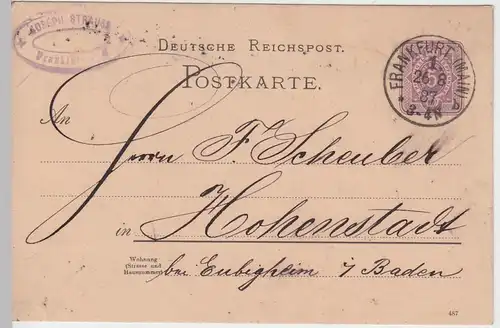 JOSEPH STRAUSS
DEUTSCHE REICHSPOST.
FRANKFURT (MAIN)
1
26 8
87
3-4N
POSTKARTE.
An
Herrn F. Scheuber
in Hohenstadt
Wohnung
(Strasse und
Hausnummer)
bei Eubigheim i/ Baden
487